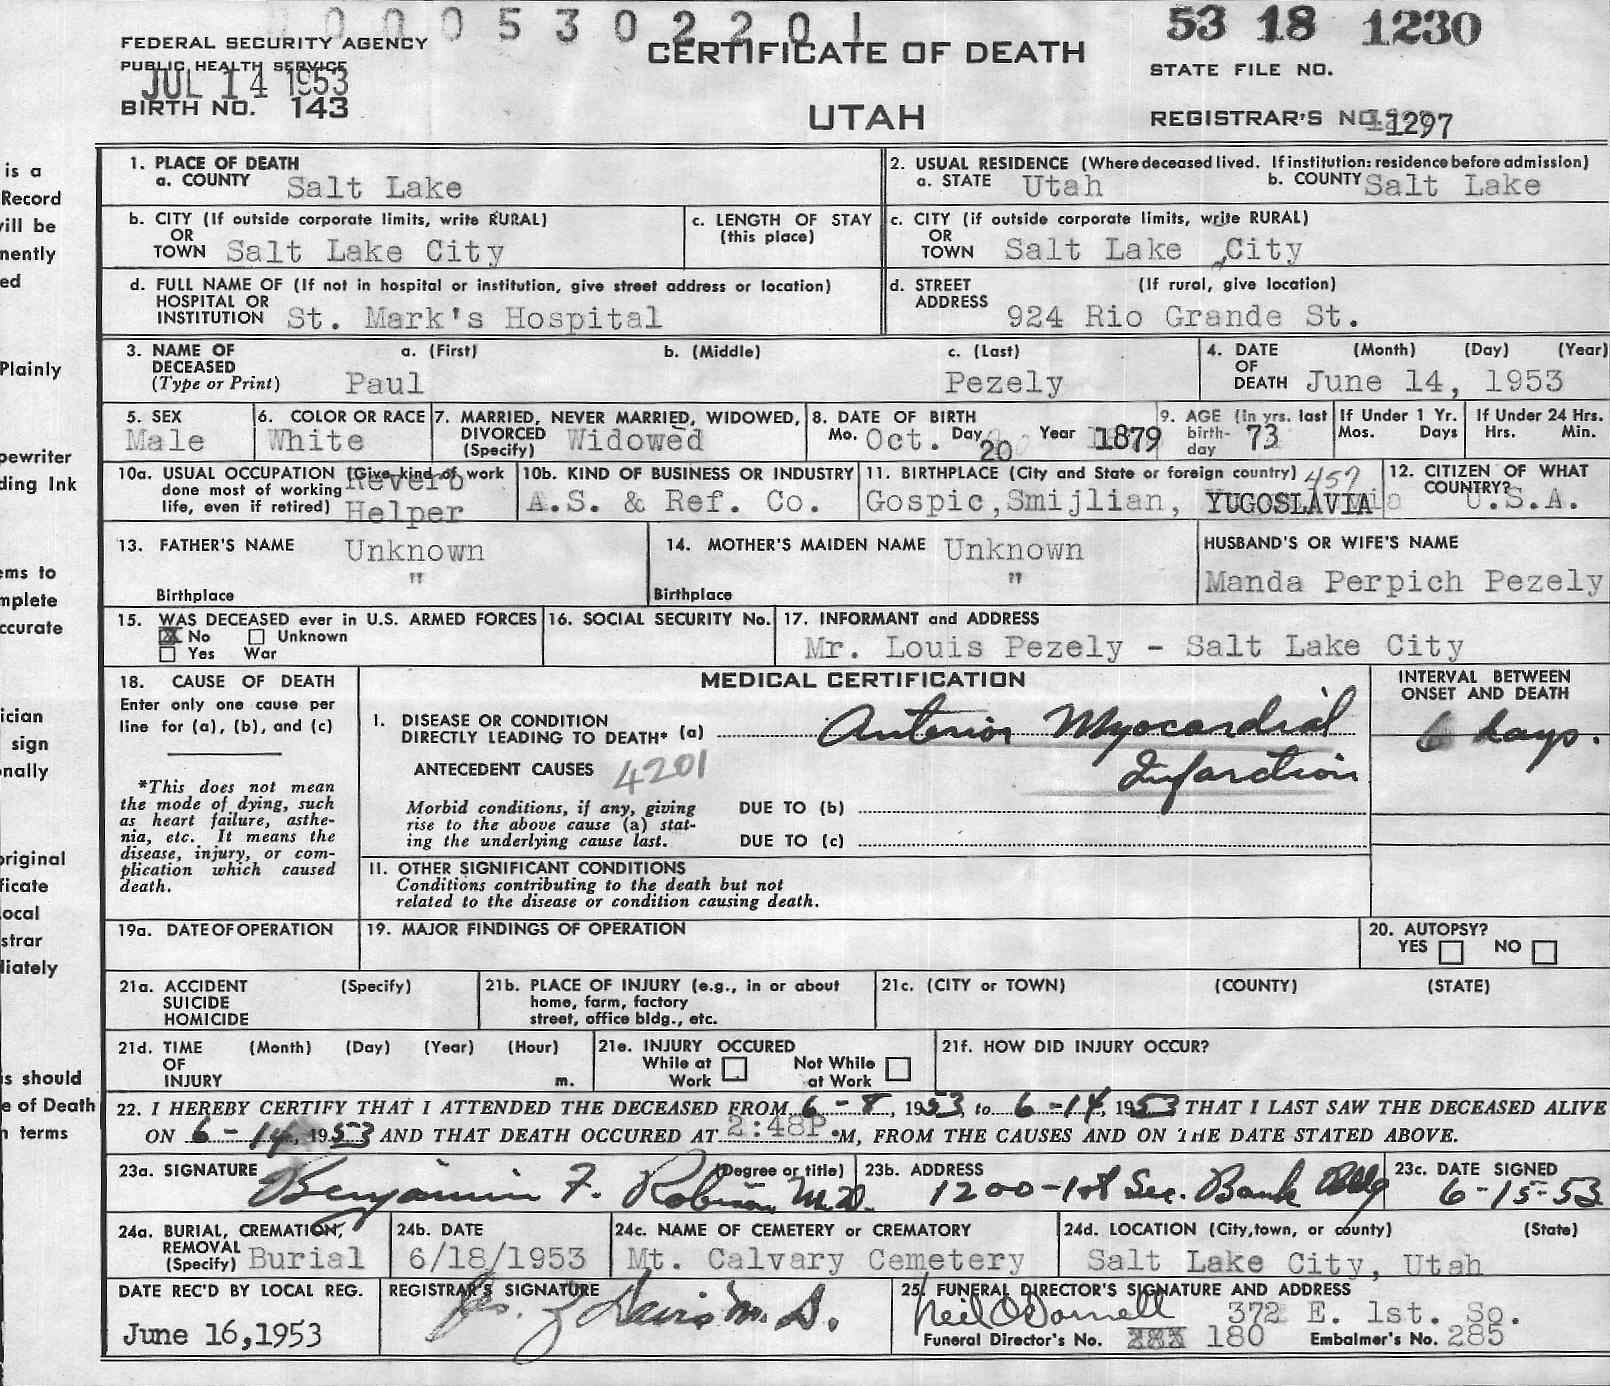 0 0 0 0 5 3 0 2 2 0 1
53 18 1230
FEDERAL SECURITY AGENCY
PUBLIC HEALTH SERVICE
JUL 14 1953
BIRTH NO. 143
CERTIFICATE OF DEATH
UTAH
STATE FILE NO.
REGISTRAR'S NO. 1297
1. PLACE OF DEATH
a. COUNTY Salt Lake
2. USUAL RESIDENCE (Where deceased lived. If institution: residence before admission)
a. STATE Utah b. COUNTY Salt Lake
b. CITY (If outside corporate limits, write RURAL)
OR
TOWN Salt Lake City
c. LENGTH OF STAY
(this place)
c. CITY (if outside corporate limits, write RURAL)
OR
TOWN Salt Lake City
d. FULL NAME OF (If not in hospital or institution, give street address or location)
HOSPITAL OR
INSTITUTION St. Mark's Hospital
d. STREET (If rural, give location)
ADDRESS 924 Rio Grande St.
3. NAME OF a. (First) b. (Middle) c. (Last)
DECEASED
(Type or Print) Paul Pezely
4. DATE (Month) (Day) (Year)
OF
DEATH June 14, 1953
5. SEX
Male
6. COLOR OR RACE
White
7. MARRIED, NEVER MARRIED, WIDOWED,
DIVORCED Widowed
(Specify)
8. DATE OF BIRTH
Mo. Oct. Day 20 Year 1879
9. AGE (In yrs. last
birth- 73
day
If Under 1 Yr.
Mos. Days
If Under 24 Hrs.
Hrs. Min.
10a. USUAL OCCUPATION (Give kind of work
done most of working Reverb
life, even if retired) Helper
10b. KIND OF BUSINESS OR INDUSTRY
A.S. & Ref. Co.
11. BIRTHPLACE (City and State or foreign country) 457
Gospic, Smijlian, YUGOSLAVIA
12. CITIZEN OF WHAT
COUNTRY?
U.S.A.
13. FATHER'S NAME Unknown
"
Birthplace
14. MOTHER'S MAIDEN NAME Unknown
"
Birthplace
HUSBAND'S OR WIFE'S NAME
Manda Perpich Pezely
15. WAS DECEASED ever in U.S. ARMED FORCES
X No Unknown
Yes War
16. SOCIAL SECURITY No.
17. INFORMANT and ADDRESS
Mr. Louis Pezely - Salt Lake City
18. CAUSE OF DEATH
Enter only one cause per
line for (a), (b), and (c)
*This does not mean
the mode of dying, such
as heart failure, asthe-
nia, etc. It means the
disease, injury, or com-
plication which caused
death.
MEDICAL CERTIFICATION
I. DISEASE OR CONDITION
DIRECTLY LEADING TO DEATH* (a) Anterior Myocardial
Infarction
ANTECEDENT CAUSES 4201
Morbid conditions, if any, giving
rise to the above cause (a) stat-
ing the underlying cause last.
DUE TO (b)
DUE TO (c)
II. OTHER SIGNIFICANT CONDITIONS
Conditions contributing to the death but not
related to the disease or condition causing death.
INTERVAL BETWEEN
ONSET AND DEATH
6 days.
19a. DATE OF OPERATION
19. MAJOR FINDINGS OF OPERATION
20. AUTOPSY?
YES NO
21a. ACCIDENT (Specify)
SUICIDE
HOMICIDE
21b. PLACE OF INJURY (e.g., in or about
home, farm, factory
street, office bldg., etc.
21c. (CITY or TOWN) (COUNTY) (STATE)
21d. TIME (Month) (Day) (Year) (Hour)
OF
INJURY m.
21e. INJURY OCCURED
While at Not While
Work at Work
21f. HOW DID INJURY OCCUR?
22. I HEREBY CERTIFY THAT I ATTENDED THE DECEASED FROM 6-8, 1953 to 6-14, 1953 THAT I LAST SAW THE DECEASED ALIVE
ON 6-14, 1953 AND THAT DEATH OCCURED AT 2:48P.M, FROM THE CAUSES AND ON THE DATE STATED ABOVE.
23a. SIGNATURE (Degree or title)
Benjamin F. Robison M.D.
23b. ADDRESS
1200-1st Sec. Bank Bldg
23c. DATE SIGNED
6-15-53
24a. BURIAL, CREMATION,
REMOVAL Burial
(Specify)
24b. DATE
6/18/1953
24c. NAME OF CEMETERY or CREMATORY
Mt. Calvary Cemetery
24d. LOCATION (City, town, or county) (State)
Salt Lake City, Utah
DATE REC'D BY LOCAL REG.
June 16, 1953
REGISTRAR'S SIGNATURE
Jas. Z Davis M.D.
25. FUNERAL DIRECTOR'S SIGNATURE AND ADDRESS
Neil O'Donnell 372 E. 1st. So.
Funeral Director's No. 180 Embalmer's No. 285
is a
Record
will be
nently
ed
Plainly
pewriter
ding Ink
ems to
mplete
ccurate
ician
sign
onally
original
ficate
ocal
strar
diately
is should
e of Death
n terms